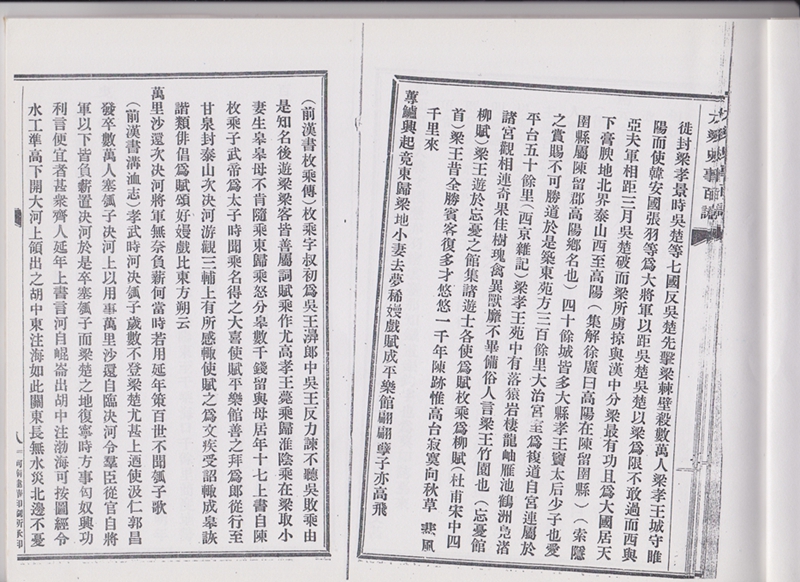 徙封梁孝景時吳楚等七國反吳楚先擊梁棘壁殺數萬人梁孝王城守睢
陽而使韓安國張羽等爲大將軍以距吳楚吳楚以梁爲限不敢過而西與
亞夫軍相距三月吳楚破而梁所虜掠與漢中分梁最有功且爲大國居天
下膏腴地北界泰山西至高陽(集解徐廣曰高陽在陳留圉縣)(索隱
圉縣屬陳留郡高陽鄉名也)四十餘城皆多大縣孝王竇太后少子也愛
之賞賜不可勝道於是築東苑方三百餘里大治宮室爲複道自宮連屬於
平台五十餘里(西京雜記)梁孝王苑中有落猿岩棲龍岫雁池鶴洲鳧渚
諸宮觀相連奇果佳樹瑰禽異獸靡不畢備俗人言梁王竹園也(忘憂館
柳賦)梁王遊於忘憂之館集諸遊士各使爲賦枚乘爲柳賦(杜甫宋中四
首)梁王昔全勝賓客復多才悠悠一千年陳跡惟高台寂寞向秋草 悲風
千里來
蓴鱸興起竟東歸梁地小妻去夢稀嫚戲賦成平樂館翩翩孽子亦高飛
(前漢書枚乘傳)枚乘字叔初爲吳王濞郎中吳王反力諫不聽吳敗乘由
是知名後遊梁梁客皆善屬詞賦乘作尤高孝王薨乘歸淮陰乘在梁取小
妻生皋皋母不肯隨乘東歸乘怒分皋數千錢留與母居年十七上書自陳
枚乘子武帝爲太子時聞乘名得之大喜使賦平樂館善之拜爲郎從行至
甘泉封泰山次決河游觀三輔上有所感輒使賦之爲文疾受詔輒成皋詼
諧類俳倡爲賦頌好嫚戲比東方朔云
萬里沙還次決河將軍無奈負薪何當時若用延年策百世不聞瓠子歌
(前漢書溝洫志)孝武時河決瓠子歲數不登梁楚尤甚上迺使汲仁郭昌
發卒數萬人塞瓠子決河上以用事萬里沙還自臨決河令羣臣從官自將
軍以下皆負薪置決河於是卒塞瓠子而梁楚之地復寧時方事匈奴興功
利言便宜者甚衆齊人延年上書言河自崐崙出胡中注渤海可按圖經令
水工準高下開大河上領出之胡中東注海如此關東長無水災北邊不憂
八